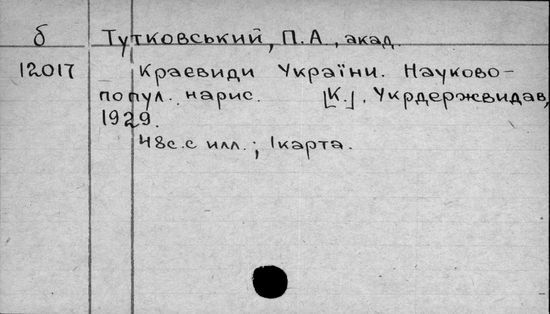 б Тутковський, П.А., акад.
12017 Краєвиди України. Науково-
попул. нарис. [К.], Укрдержвидав,
1929.
48с.с илл.; 1карта.